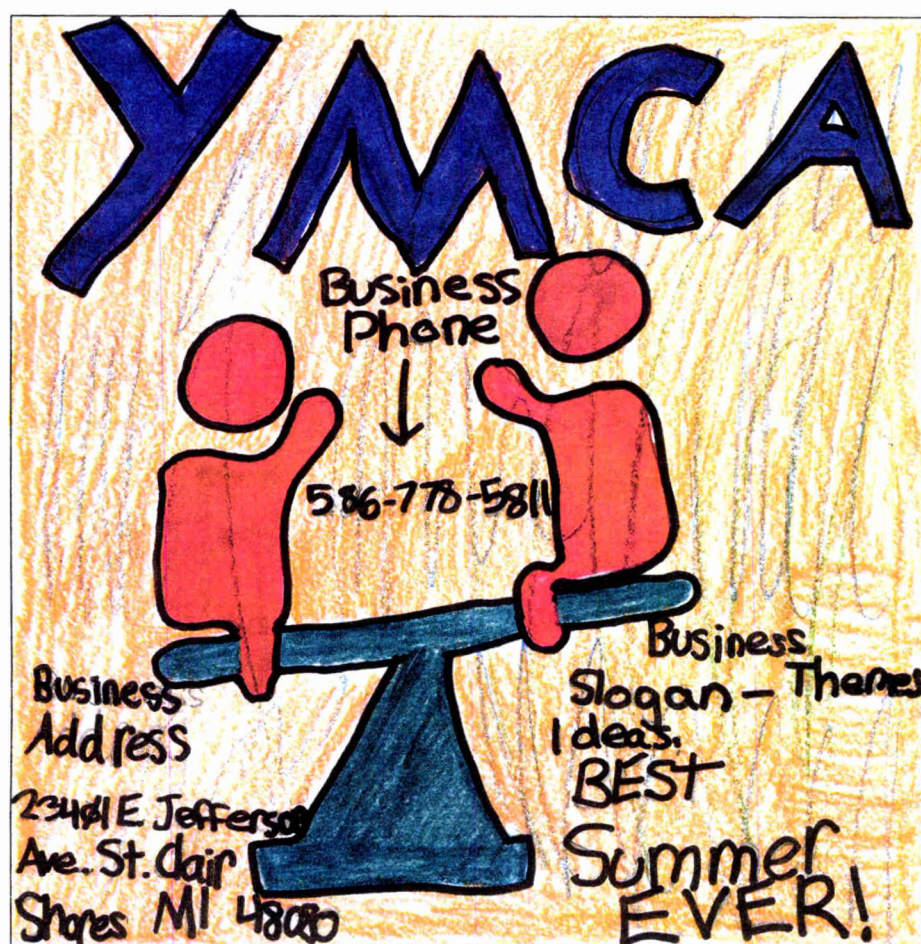 YMCA
Business
Phone
586-778-5811
Business
Address
23401 E Jefferson
Ave. St. Clair
Shores MI 48080
Business
Slogan - Themes
Ideas.
BEST
Summer
EVER!